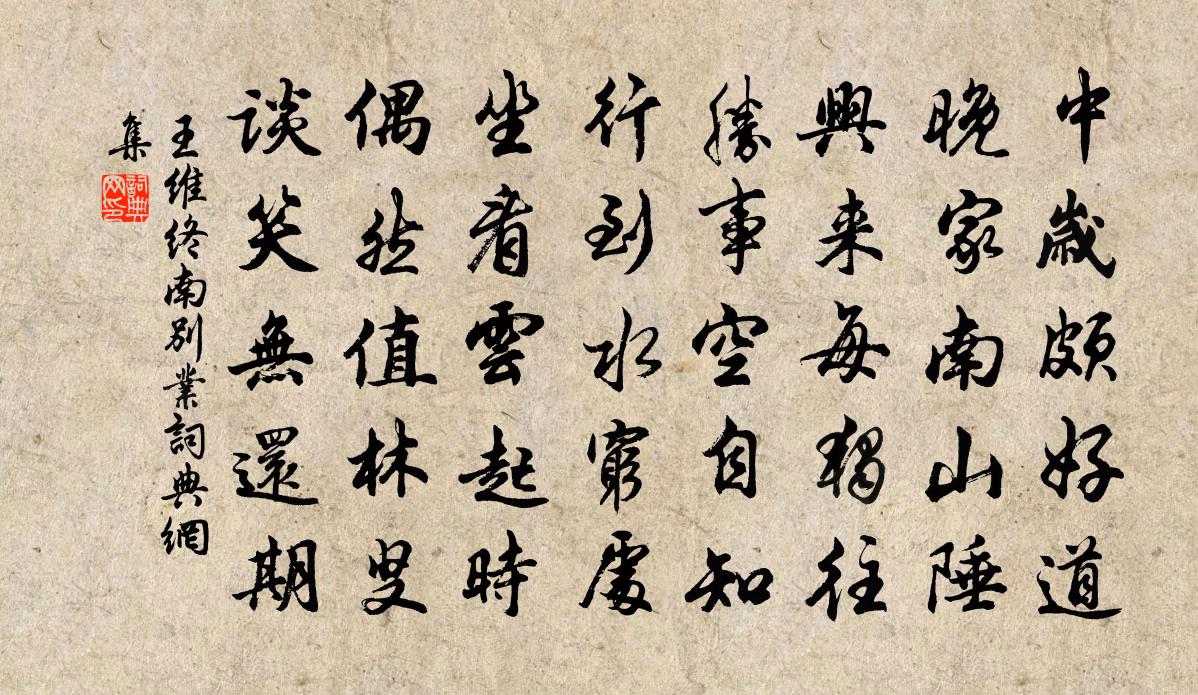 中歲頗好道
晚家南山陲
興来每獨往
勝事空自知
行到水窮處
坐看雲起時
偶然值林叟
談笑無還期
王維終南別業詞典網
集
詞典
网印